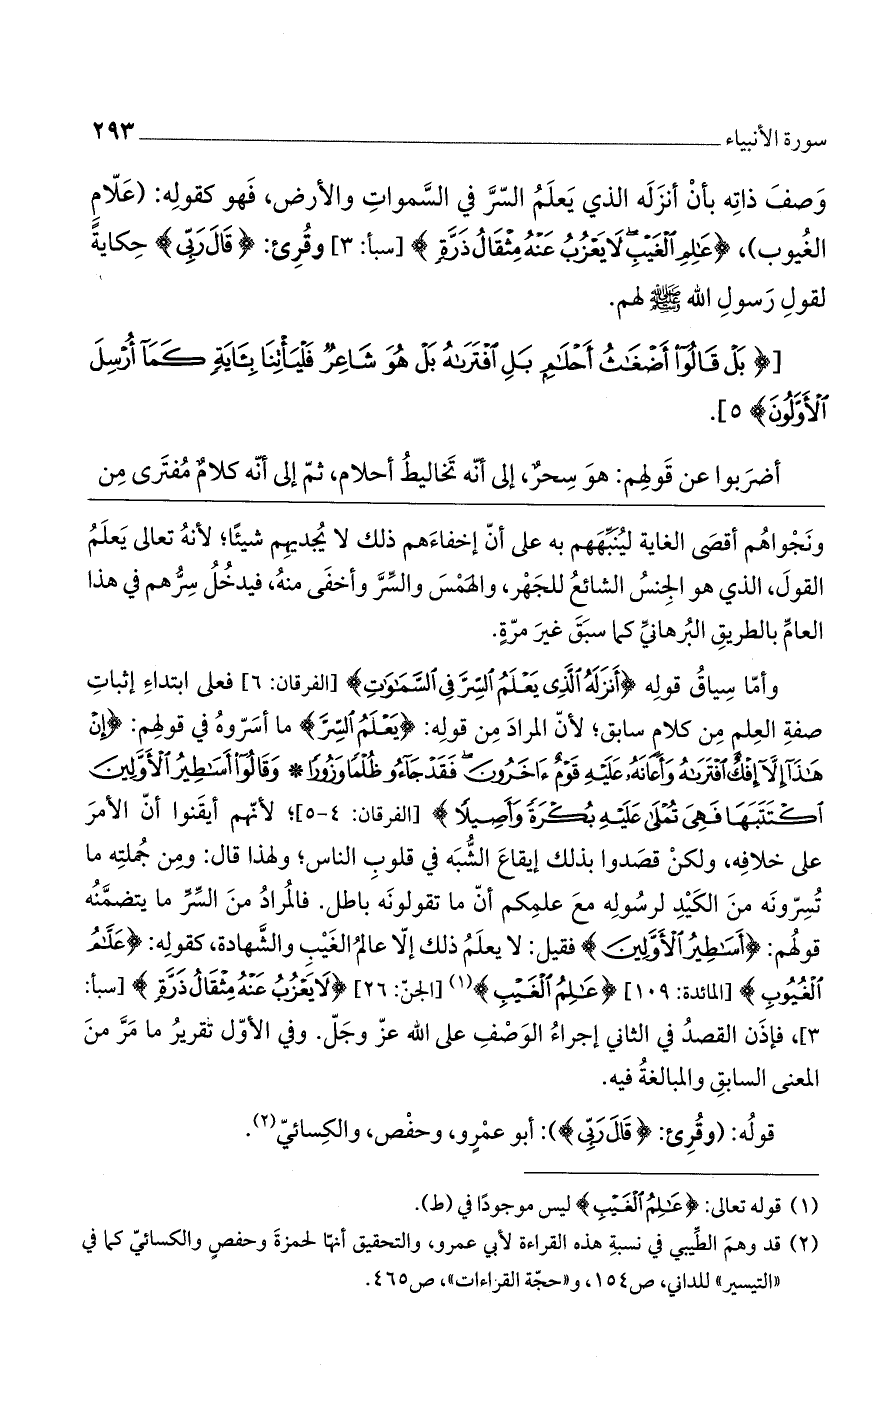 سورة الأنبياء ٢٩٣
وَصفَ ذاتِه بأنْ أنزلَه الذي يَعلَمُ السّرَّ في السَّمواتِ والأرض، فَهو كقولِه: (عَلّام
الغُيوب)، ﴿عَـٰلِمِ ٱلْغَيْبِ ۖ لَا يَعْزُبُ عَنْهُ مِثْقَالُ ذَرَّةٍ﴾ [سبأ: ٣] وقُرِئ: ﴿قَالَ رَبِّي﴾ حِكايةً
لقولِ رَسولِ الله ﷺ لهم.
[﴿بَلْ قَالُوٓا۟ أَضْغَـٰثُ أَحْلَـٰمٍۭ بَلِ ٱفْتَرَىٰهُ بَلْ هُوَ شَاعِرٌ فَلْيَأْتِنَا بِـَٔايَةٍ كَمَآ أُرْسِلَ
ٱلْأَوَّلُونَ﴾ ٥].
أضرَبوا عن قَولِهم: هوَ سِحرٌ، إلى أنّه تَخاليطُ أحلام، ثمّ إلى أنّه كلامٌ مُفتَرى مِن
ونَجْواهُم أقصَى الغاية ليُنَبِّهَهم به على أنّ إخفاءَهم ذلك لا يُجديهِم شيئًا؛ لأنهُ تعالى يَعلَمُ
القولَ، الذي هو الجِنسُ الشائعُ للجَهْر، والهَمْسَ والسِّرَّ وأخفَى منهُ، فيدخُلُ سِرُّهم في هذا
العامِّ بالطريقِ البُرهانيِّ كما سبَقَ غيرَ مرّةٍ.
وأمّا سِياقُ قولِه ﴿أَنزَلَهُ ٱلَّذِى يَعْلَمُ ٱلسِّرَّ فِى ٱلسَّمَـٰوَٰتِ﴾ [الفرقان: ٦] فعلى ابتداءِ إثباتِ
صفةِ العِلمِ مِن كلامٍ سابق؛ لأنّ المرادَ مِن قولِه: ﴿يَعْلَمُ ٱلسِّرَّ﴾ ما أسَرّوهُ في قولهِم: ﴿إِنْ
هَـٰذَآ إِلَّآ إِفْكٌ ٱفْتَرَىٰهُ وَأَعَانَهُۥ عَلَيْهِ قَوْمٌ ءَاخَرُونَ ۖ فَقَدْ جَآءُو ظُلْمًا وَزُورًا * وَقَالُوٓا۟ أَسَـٰطِيرُ ٱلْأَوَّلِينَ
ٱكْتَتَبَهَا فَهِىَ تُمْلَىٰ عَلَيْهِ بُكْرَةً وَأَصِيلًا﴾ [الفرقان: ٤-٥]؛ لأنّهم أيقَنوا أنّ الأمرَ
على خلافِه، ولكنْ قصَدوا بذلك إيقاعَ الشُّبَه في قلوبِ الناس؛ ولهذا قال: ومِن جُملتِه ما
تُسِرّونَه منَ الكَيْدِ لرسُولِه معَ علمِكم أنّ ما تقولونَه باطل. فالمُرادُ منَ السِّرِّ ما يتضمَّنُه
قولُهم: ﴿أَسَـٰطِيرُ ٱلْأَوَّلِينَ﴾ فقيل: لا يعلَمُ ذلك إلّا عالمُ الغَيْبِ والشَّهادة، كقولِه: ﴿عَلَّـٰمُ
ٱلْغُيُوبِ﴾ [المائدة: ١٠٩] ﴿عَـٰلِمُ ٱلْغَيْبِ﴾(١) [الجنّ: ٢٦] ﴿لَا يَعْزُبُ عَنْهُ مِثْقَالُ ذَرَّةٍ﴾ [سبأ:
٣]، فإذَن القصدُ في الثاني إجراءُ الوَصْفِ على الله عزّ وجَلّ. وفي الأوّل تقريرُ ما مَرَّ منَ
المعنى السابقِ والمبالغةُ فيه.
قولُه: (وقُرِئ: ﴿قَالَ رَبِّي﴾): أبو عمْرٍو، وحفْص، والكِسائيّ(٢).
(١) قوله تعالى: ﴿عَـٰلِمُ ٱلْغَيْبِ﴾ ليس موجودًا في (ط).
(٢) قد وهمَ الطِّيبي في نسبةِ هذه القراءة لأبي عمرو، والتحقيق أنهّا لحمزةَ وحفصٍ والكسائيّ كما في
«التيسير» للداني، ص١٥٤، و«حجّة القراءات»، ص٤٦٥.